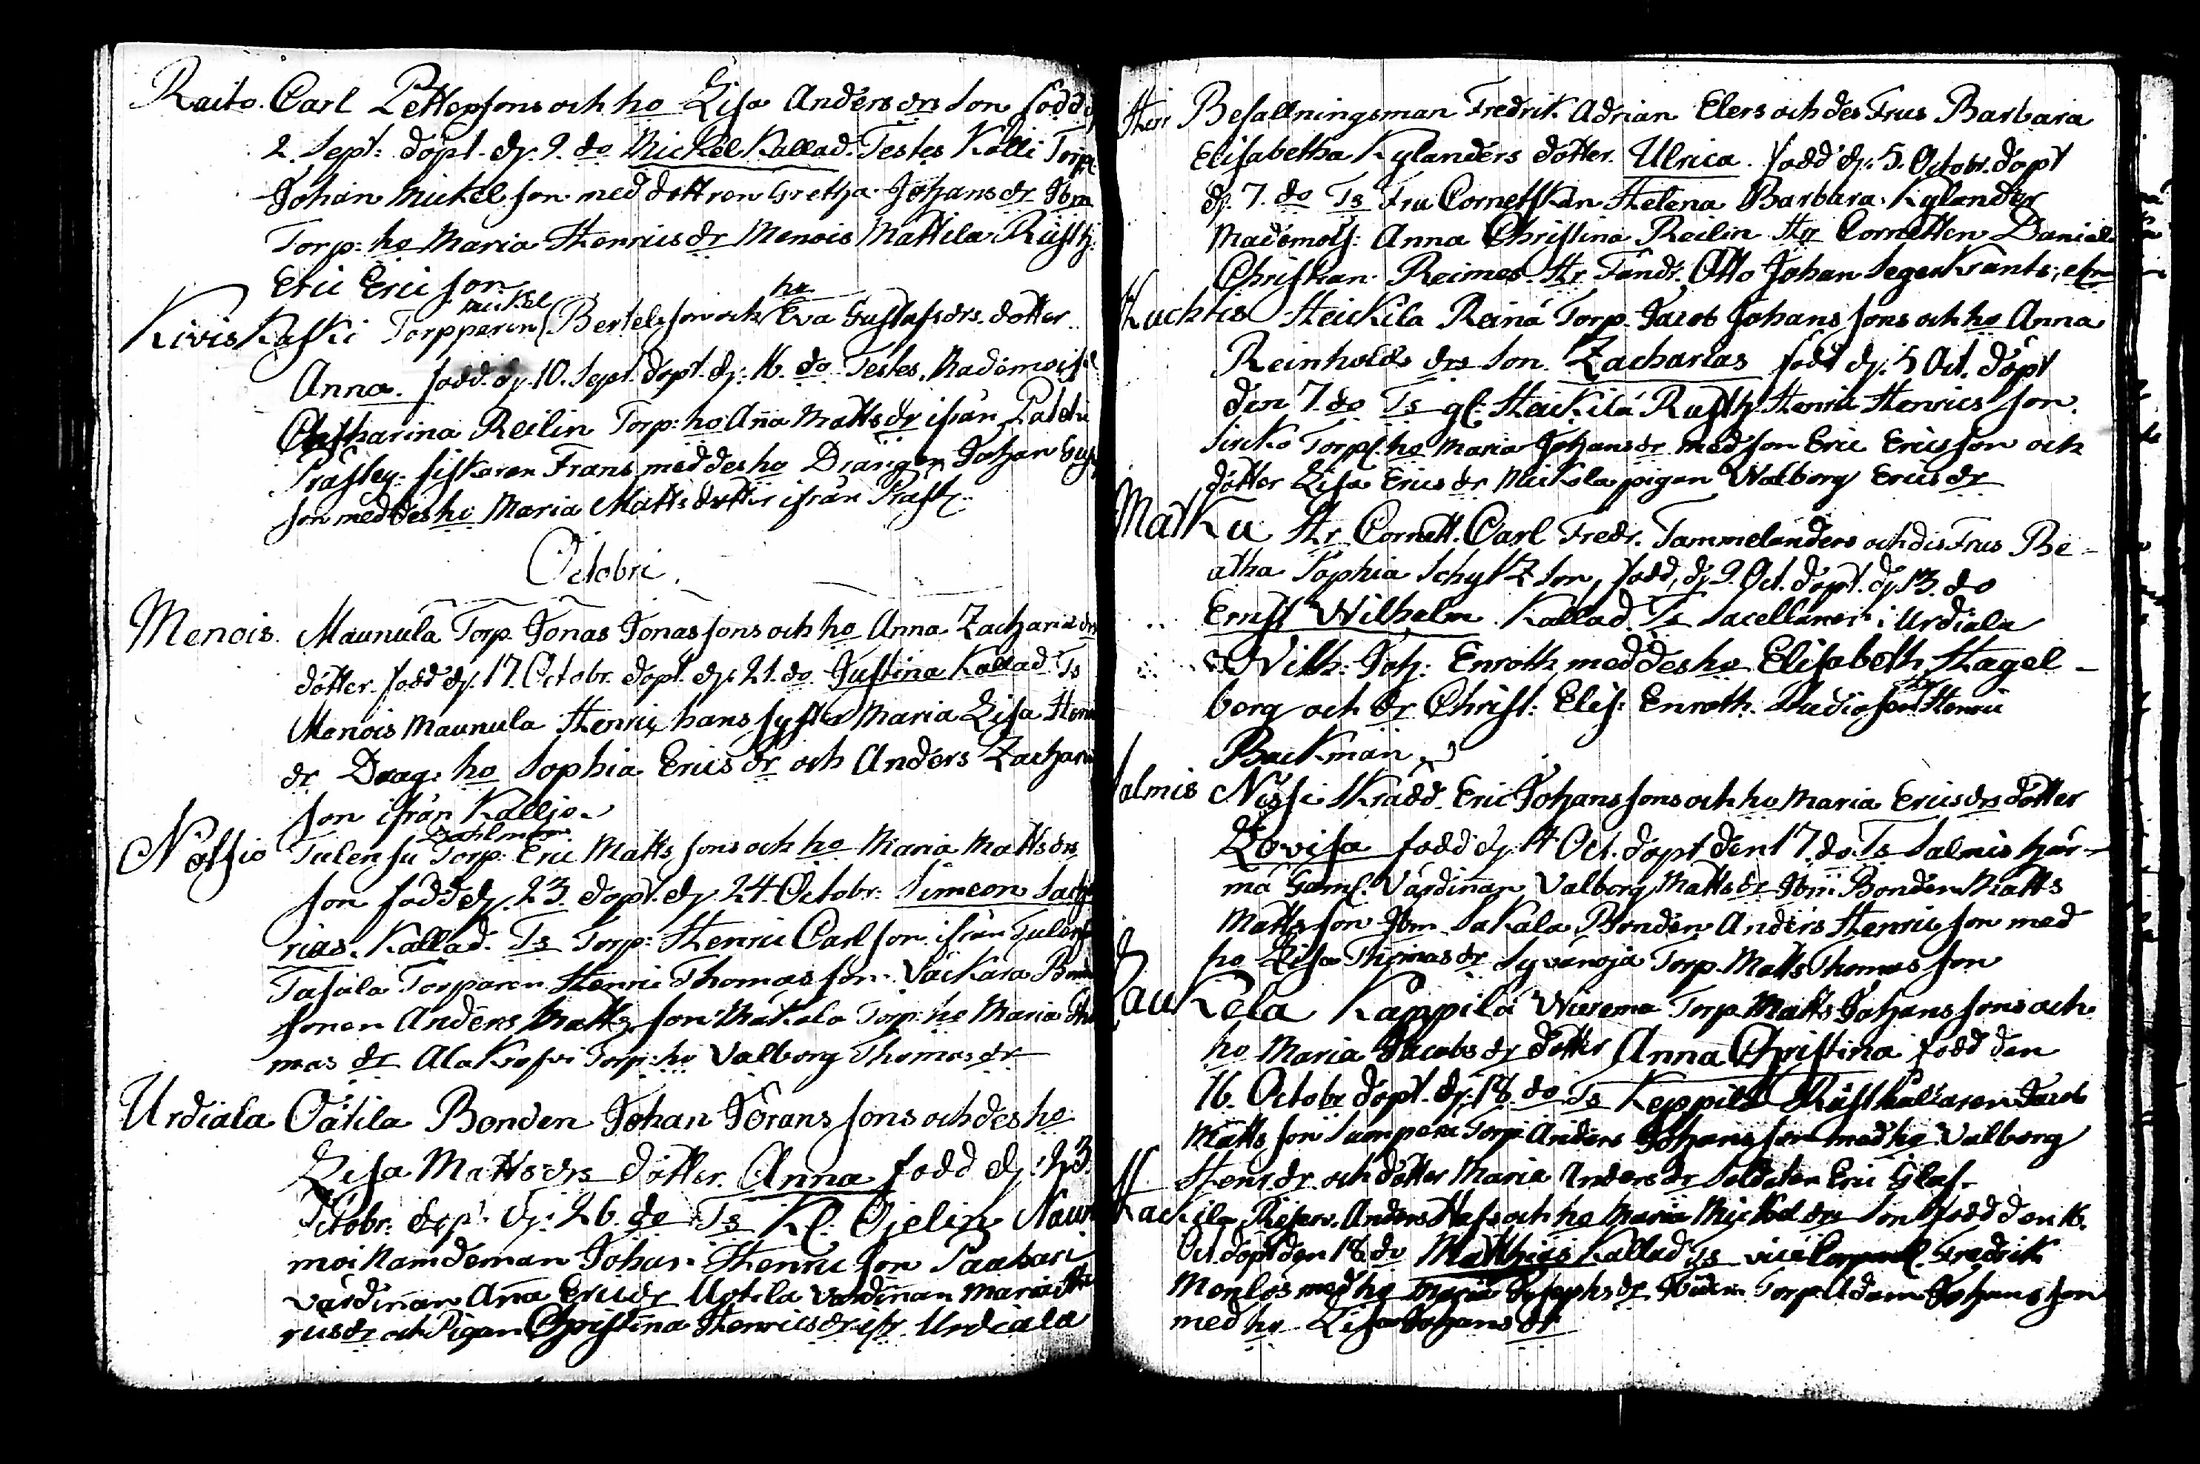 Raito. Carl Pettersons och ho Lisa Anders drs Son född dj
2. Sept: döpt. dj. 9. do Mickel Kallad. Testes Kolli Torp:
Johan Mickelson med dottren Gretha Johans dr Ibm
Torp: ho Maria Henrics dr Menois Mattila Rusth:
Eric Ericson
Kiviskaski Torpparen Mickel Bertelsson och ho Eva Gustafs drs dotter
Anna. född. dj. 10. Sept. döpt. dj: 16. do Testes. Mademoiss:
Catharina Reilin Torp: ho Anna Matts dr ifrån
fiskaren Frans med des ho Drängen Johan
son med des ho Maria Matts dotter ifrån Prästg.
Octobri.
Menois. Maunula Torp. Jonas Jonassons och ho Anna Zacharie drs
dotter. född dj. 17. Octobr. döpt. dj. 21. do Justina Kallad. Ts
Menois Maunula Henric hans syster Maria Lisa Henr
dr Drag: ho Sophia Erics dr och Anders Zachari
son ifrån Kallio.
Notsio Tulensu Torp: Dahlman Eric Mattssons och ho Maria Matts drs
son född dj. 23. döpt. dj. 24. Octobr: Simeon Zacha
rias. Kallad. Ts Torp: Henric Carlson ifrån Tulensu
Torparen Henric Thomasson. Väckära Bond
sonen Anders Mattsson Makala Torp: ho Maria Tho
mas dr Torp: ho Valborg Thomas dr
Urdiala Oätila Bonden Johan Jöranssons och des ho
Lisa Matts drs dotter. Anna född dj: 23.
Octobr: döpt. dj. 26. do Ts Kl: Ojelin
Nämdeman Johan Henricson
värdinnan Anna Erics dr värdinnan Maria Hen
rics dr och Pigan Christina Henrics dr ifr. Urdiala
Herr Befallningsman Fredrik Adrian Elers och des Frus Barbara
Elisabetha Kylanders dotter. Ulrica. född dj. 5. Octobr. döpt
dj. 7. do Ts Fru Cornettskan Helena Barbara Kylander
Mademois: Anna Christina Reilin Hr Cornetten Daniel
Christian Reimes Hr Fändr. Otto Johan Segerkrants,
Huchtis Heickila Torp. Jacob Johanssons och ho Anna
Reinholds drs Son. Zacharias född dj. 5 Oct. döpt
den 7. do Ts gl: Heickilä Rusth Henric Henricsson.
Torpf. ho Maria Johans dr med son Eric Ericsson och
dotter Lisa Erics dr Mickola pigan Walborg Erics dr
Matku Hr Cornett. Carl Fredr. Tammelanders och dis Frus Be-
atha Sophia Schytz Son, född, dj 9. Oct. döpt. dj 13. do
Ernst Wilhelm Kallad. Ts Sacellanen i Urdiala
Wilh: Joh: Enroth med des ho Elisabeth Hagel-
berg och dr Christ: Elis: Enroth. Studiosus Hr Henric
Backman
Salmis Nissi Skrädd. Eric Johanssons och ho Maria Erics drs dotter
Lovisa född dj. 4 Oct. döpt den 17. do. Ts Salmis Här-
mä Gaml. Värdinnan Valborg Matts dr Ibm: Bonden Matts
Mattsson Ibm Sakala Bonden Anders Henricson med
ho Lisa Thomas dr Syvänoja Torp. Matts Thomasson
Kaukela Kappilä Torp. Matts Johanssons och
ho Maria Jacobs dr dotter Anna Christina född den
16. Octobr döpt. dj. 18. do Ts Keppilä Rusthållaren Jacob
Mattsson Torp. Anders Johansson med ho Valborg
Henr. dr och dotter Maria Anders dr Soldaten Eric Glas.
Anders och ho Maria Mickel drs Son född den 16.
Oct. döpt den 18. do Matthias Kallad Ts vice Fredrik
med ho Maria Josephs dr Torp. Adam Johansson
med ho Lisa Johans dr